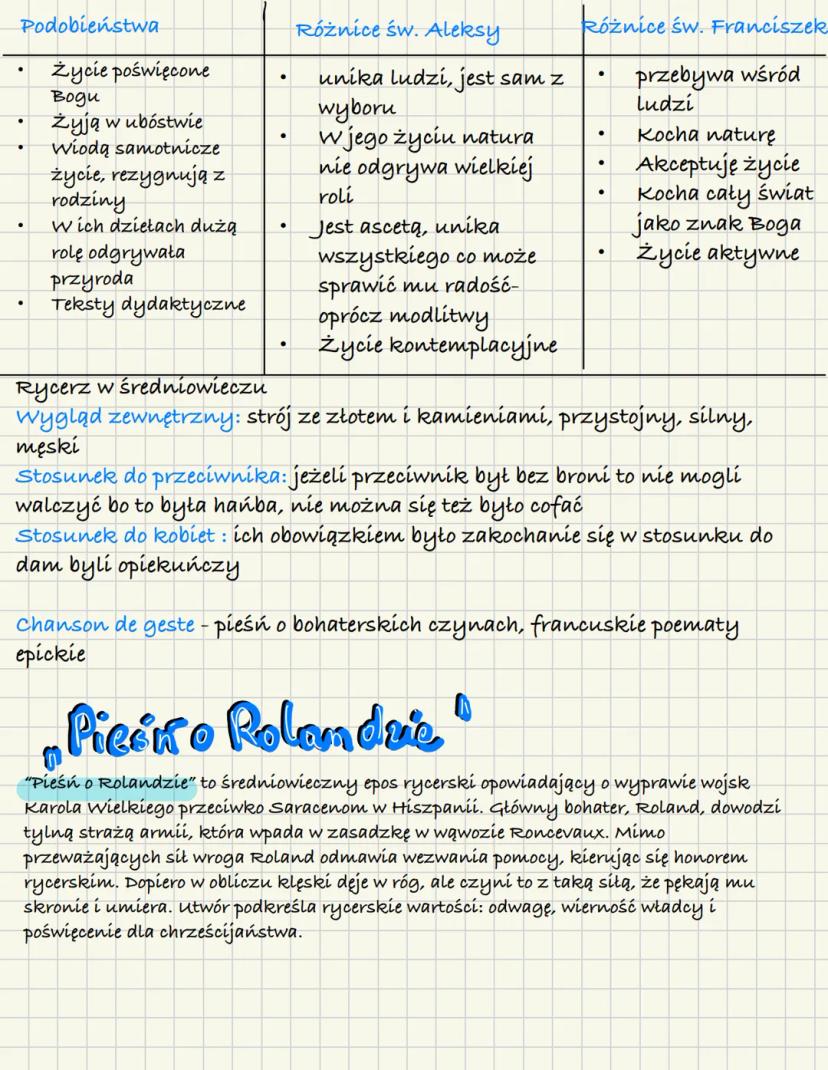 Podobieństwa
• Życie poświęcone
Bogu
• Żyją w ubóstwie
• Wiodą samotnicze
życie, rezygnują z
rodziny
• W ich dziełach dużą
rolę odgrywała
przyroda
• Teksty dydaktyczne
Różnice św. Aleksy
• unika ludzi, jest sam z
wyboru
• W jego życiu natura
nie odgrywa wielkiej
roli
• Jest ascetą, unika
wszystkiego co może
sprawić mu radość-
oprócz modlitwy
• Życie kontemplacyjne
Różnice św. Franciszek
• przebywa wśród
ludzi
• Kocha naturę
• Akceptuję życie
• Kocha cały świat
jako znak Boga
• Życie aktywne
Rycerz w średniowieczu
Wygląd zewnętrzny: strój ze złotem i kamieniami, przystojny, silny,
męski
Stosunek do przeciwnika: jeżeli przeciwnik był bez broni to nie mogli
walczyć bo to była hańba, nie można się też było cofać
Stosunek do kobiet : ich obowiązkiem było zakochanie się w stosunku do
dam byli opiekuńczy
Chanson de geste - pieśń o bohaterskich czynach, francuskie poematy
epickie
„Pieśń o Rolandzie"
“Pieśń o Rolandzie” to średniowieczny epos rycerski opowiadający o wyprawie wojsk
Karola Wielkiego przeciwko Saracenom w Hiszpanii. Główny bohater, Roland, dowodzi
tylną strażą armii, która wpada w zasadzkę w wąwozie Roncevaux. Mimo
przeważających sił wroga Roland odmawia wezwania pomocy, kierując się honorem
rycerskim. Dopiero w obliczu klęski dęje w róg, ale czyni to z taką siłą, że pękają mu
skronie i umiera. Utwór podkreśla rycerskie wartości: odwagę, wierność władcy i
poświęcenie dla chrześcijaństwa.